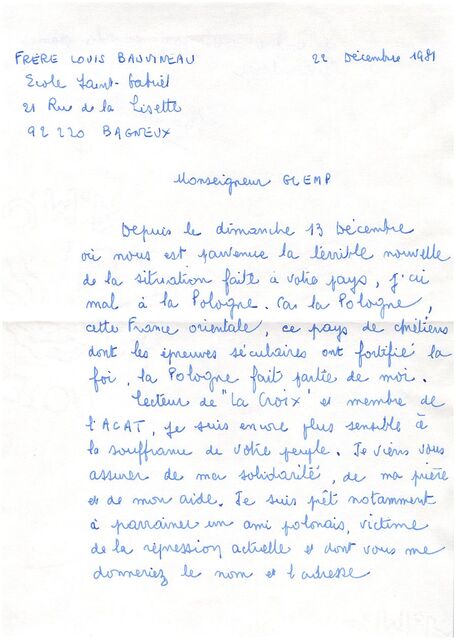 FRÈRE LOUIS BAUVINEAU
22 Décembre 1981
Ecole Saint-Gabriel
21 Rue de la Lisette
92 220 BAGNEUX
Monseigneur GLEMP
Depuis le dimanche 13 Décembre
où nous est parvenue la terrible nouvelle
de la situation faite à votre pays, j'ai
mal à la Pologne. Car la Pologne,
cette France orientale, ce pays de chrétiens
dont les épreuves séculaires ont fortifié la
foi, la Pologne fait partie de moi.
Lecteur de "La Croix" et membre de
l'ACAT, je suis encore plus sensible à
la souffrance de votre peuple. Je viens vous
assurer de ma solidarité, de ma prière
et de mon aide. Je suis prêt notamment
à parrainer un ami polonais, victime
de la répression actuelle et dont vous me
donneriez le nom et l'adresse